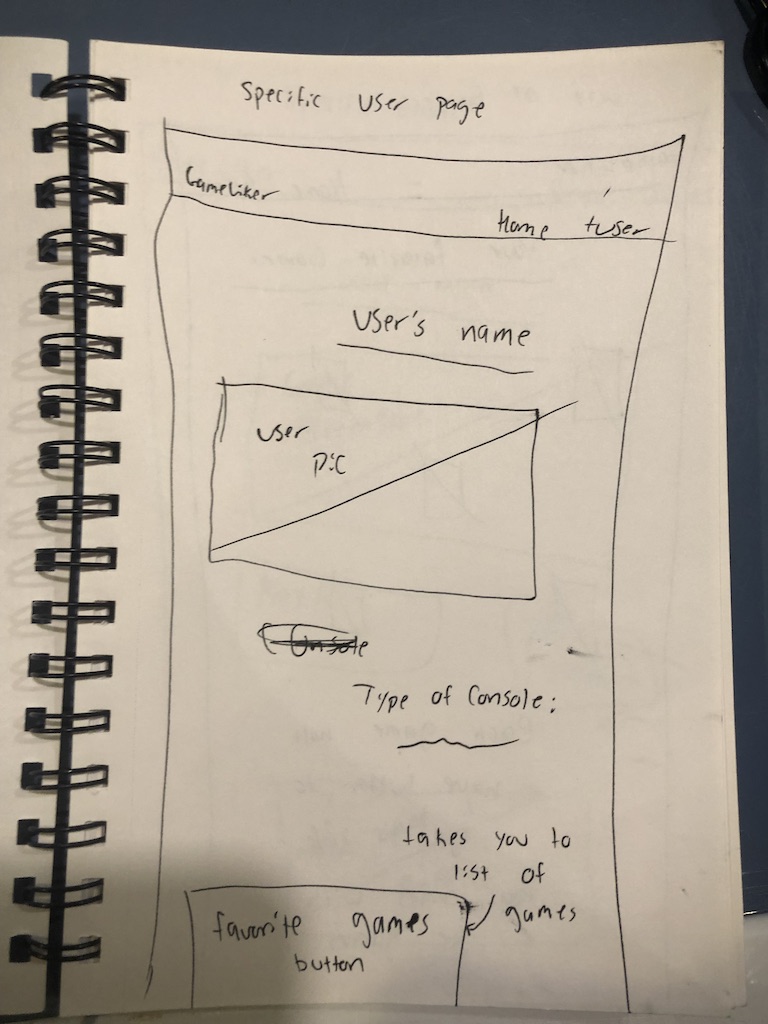 Specific user page
GameLiker
Home +user
User's name
user
pic
Console
Type of Console:
takes you to
list of
games
favorite games
button